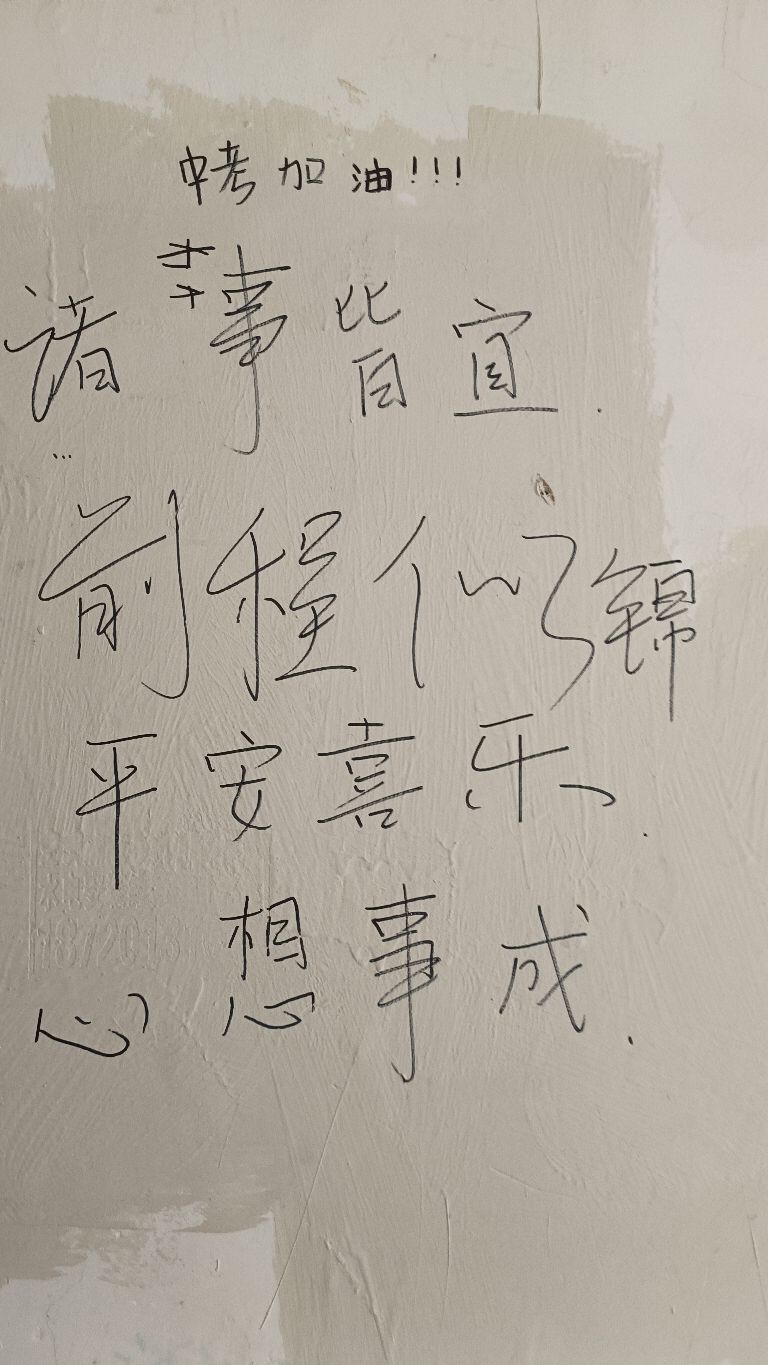 中考加油!!!
诸事皆宜.
前程似锦
平安喜乐.
心想事成.